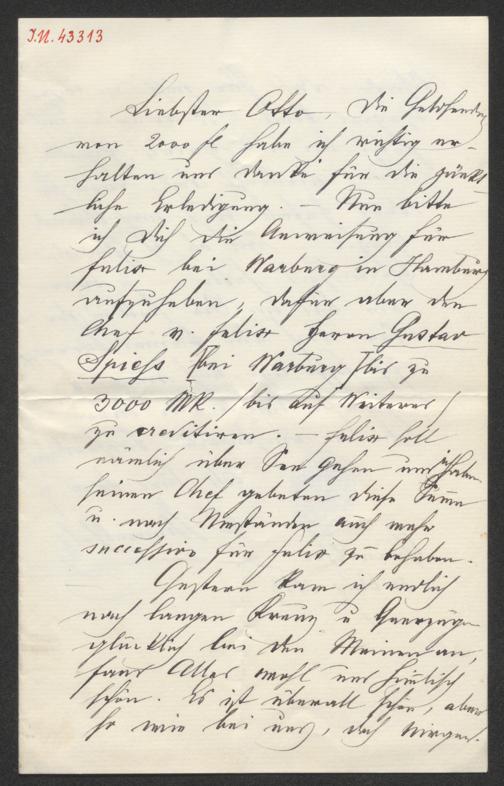 I.N. 43313
Liebster Otto, die Geldsendung
von 2000 fl habe ich richtig er-
halten und danke für die pünkt-
liche Erledigung. – Nun bitte
ich Dich die Anweisung für
Felix bei Warburg in Hamburg
aufzuheben, dafür aber den
Chef v. Felix Herrn Gustav
Spiess (bei Warburg) bis zu
3000 Mk. /bis auf Weiteres/
zu creditiren. – Felix soll
nämlich über See gehen und ich habe
seinen Chef gebeten diese Summe
u. nach Umständen auch mehr
successive für Felix zu beheben.
Gestern kam ich endlich
nach langen Kreuz u Querzügen
glücklich bei den Meinen an,
fand Alles wohl und heimlich
schön. Es ist überall schön, aber
so wie bei uns, doch nirgends.